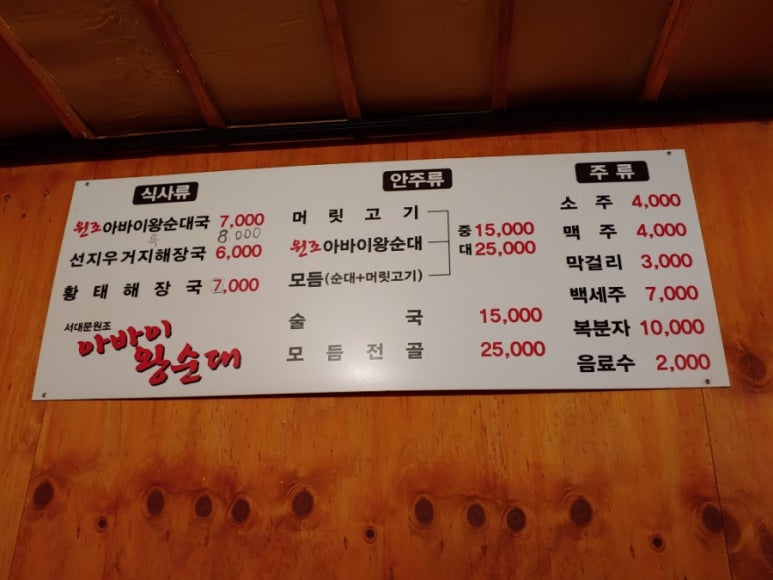 식사류
원조아바이왕순대국 7,000
특 8,000
선지우거지해장국 6,000
황태해장국 7,000
서대문원조
아바이
왕순대
안주류
머릿고기
원조아바이왕순대
모듬(순대+머릿고기)
중 15,000
대 25,000
술국 15,000
모듬전골 25,000
주류
소주 4,000
맥주 4,000
막걸리 3,000
백세주 7,000
복분자 10,000
음료수 2,000